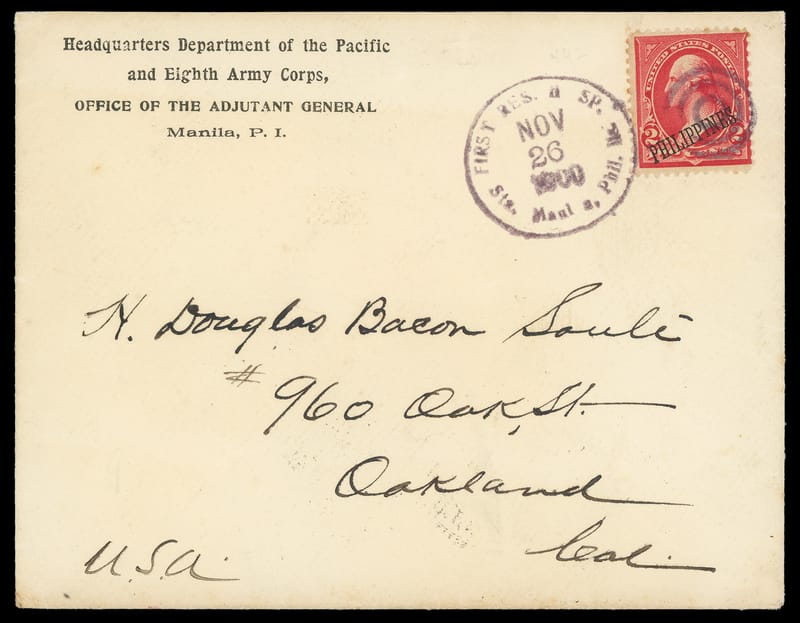 Headquarters Department of the Pacific
and Eighth Army Corps,
OFFICE OF THE ADJUTANT GENERAL
Manila, P. I.
UNITED STATES POSTAGE
2
PHILIPPINES
FIRST RES. SP.
NOV
26
1900
Sta. Manila, Phil.
H. Douglas Bacon Soulé
# 960 Oak St.
Oakland
Cal.
U.S.A.